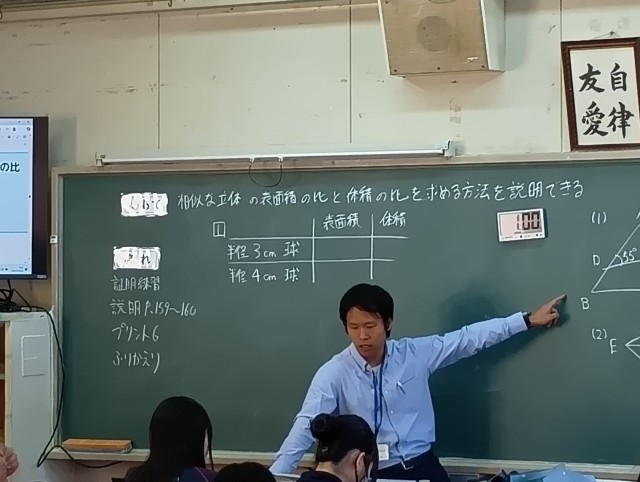 の比
相似な立体の表面積の比と体積の比を求める方法を説明できる
1
表面積 体積
半径3cm球
半径4cm球
ながれ
証明練習
説明 P.159~160
プリント6
ふりかえり
1:00
自律
友愛
(1)
D 55°
B
(2)
E